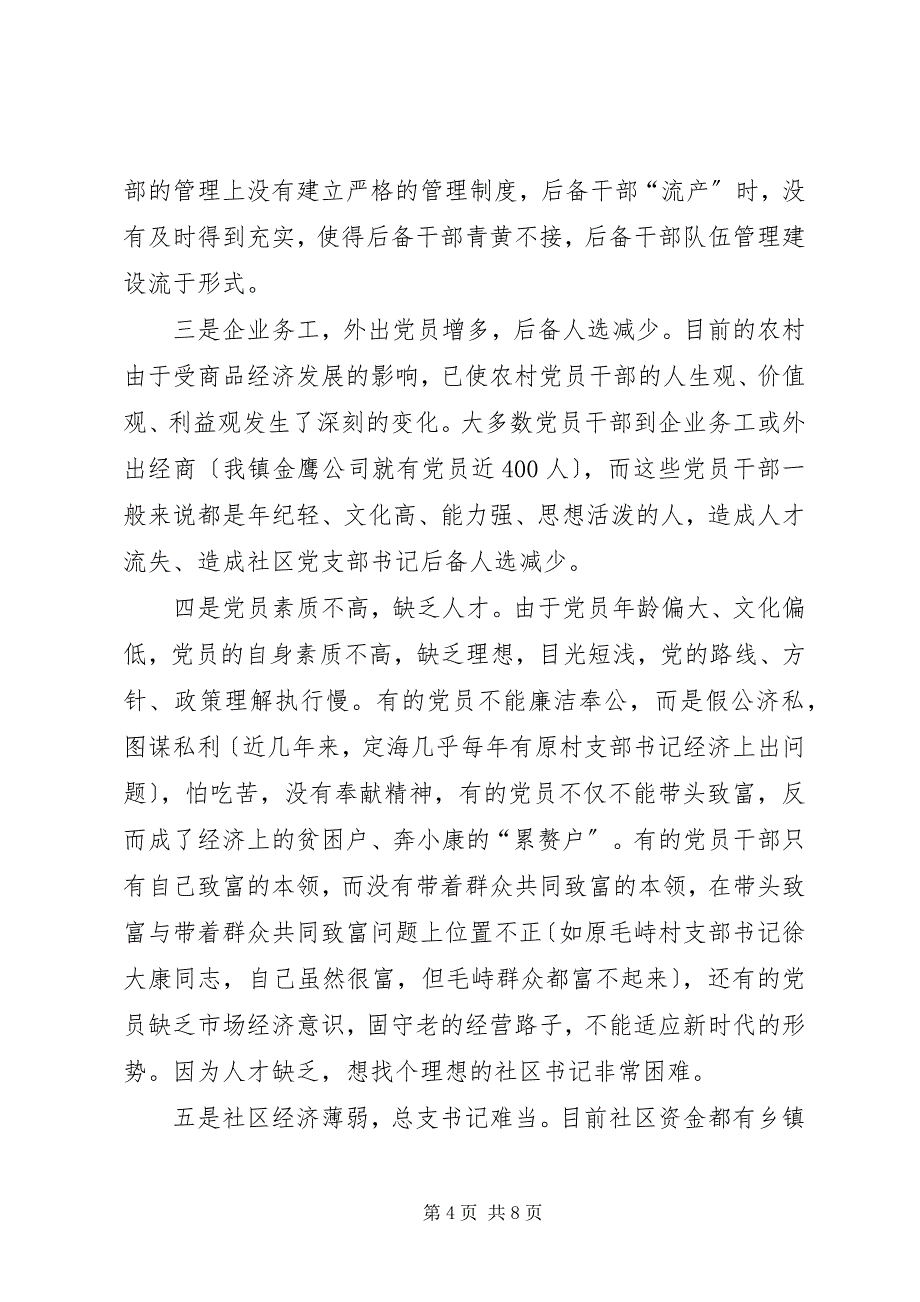 部的管理上没有建立严格的管理制度，后备干部“流产〞时，没
有及时得到充实，使得后备干部青黄不接，后备干部队伍管理建
设流于形式。
三是企业务工，外出党员增多，后备人选减少。目前的农村
由于受商品经济发展的影响，已使农村党员干部的人生观、价值
观、利益观发生了深刻的变化。大多数党员干部到企业务工或外
出经商〔我镇金鹰公司就有党员近 400 人〕，而这些党员干部一
般来说都是年纪轻、文化高、能力强、思想活泼的人，造成人才
流失、造成社区党支部书记后备人选减少。
四是党员素质不高，缺乏人才。由于党员年龄偏大、文化偏
低，党员的自身素质不高，缺乏理想，目光短浅，党的路线、方
针、政策理解执行慢。有的党员不能廉洁奉公，而是假公济私，
图谋私利〔近几年来，定海几乎每年有原村支部书记经济上出问
题〕，怕吃苦，没有奉献精神，有的党员不仅不能带头致富，反
而成了经济上的贫困户、奔小康的“累赘户〞。有的党员干部只
有自己致富的本领，而没有带着群众共同致富的本领，在带头致
富与带着群众共同致富问题上位置不正〔如原毛峙村支部书记徐
大康同志，自己虽然很富，但毛峙群众都富不起来〕，还有的党
员缺乏市场经济意识，固守老的经营路子，不能适应新时代的形
势。因为人才缺乏，想找个理想的社区书记非常困难。
五是社区经济薄弱，总支书记难当。目前社区资金都有乡镇
第 4 页 共 8 页